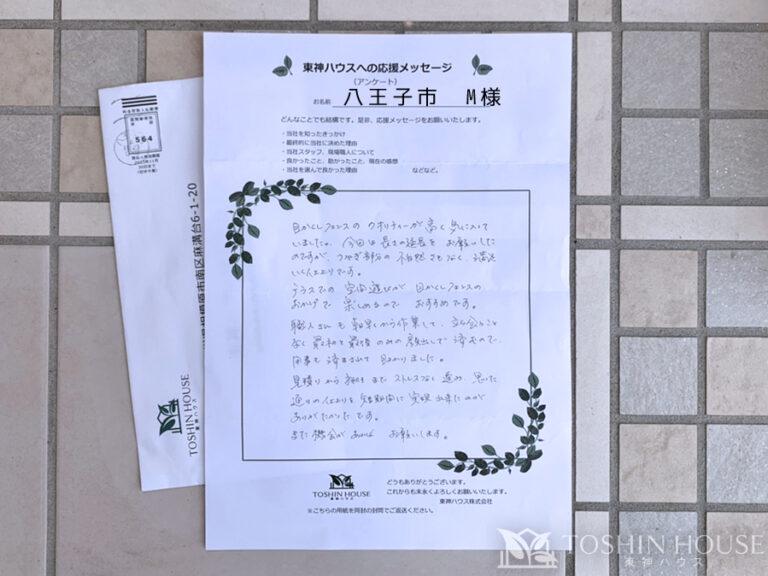 東神ハウスへの応援メッセージ
（アンケート）
お名前 八王子市 M様
どんなことでも結構です。是非、応援メッセージをお願いいたします。
・当社を知ったきっかけ
・最終的に当社に決めた理由
・当社スタッフ、現場職人について
・良かったこと、助かったこと、現在の感想
・当社を選んで良かった理由 などなど。
目かくしフェンスのクオリティーが高く気に入って
いました。今回は長さの延長をお願いした
のですが、つなぎ部分の不自然さもなく、満足
いく仕上りです。
テラスでの 遊びが目かくしフェンスの
おかげで楽しめるので おすすめです。
職人さんも朝早くから作業して、立ち会うこと
なく最初と最後のみの顔出しで済むので、
用事も済まされて助かりました。
見積りから施工までストレスなく進み、思った
通りの仕上りを短期間に実現出来たのが
ありがたかったです。
また機会があれば お願いします。
TOSHIN HOUSE
東神ハウス
どうもありがとうございます。
これからも末永くよろしくお願いいたします。
東神ハウス株式会社
※こちらの用紙を同封の封筒でご返送ください。
564
相模原市南区麻溝台6-1-20
TOSHIN HOUSE
東神ハウス
TOSHIN HOUSE
東神ハウス